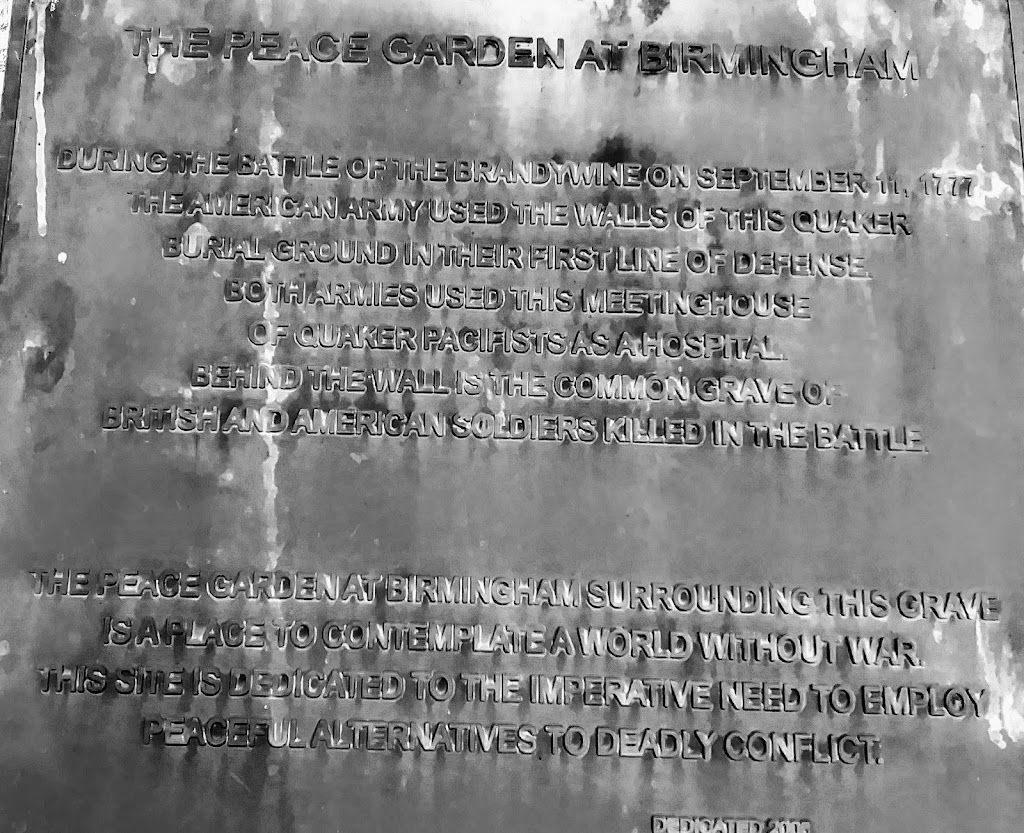 THE PEACE GARDEN AT BIRMINGHAM
DURING THE BATTLE OF THE BRANDYWINE ON SEPTEMBER 11, 1777
THE AMERICAN ARMY USED THE WALLS OF THIS QUAKER
BURIAL GROUND IN THEIR FIRST LINE OF DEFENSE.
BOTH ARMIES USED THIS MEETINGHOUSE
OF QUAKER PACIFISTS AS A HOSPITAL.
BEHIND THE WALL IS THE COMMON GRAVE OF
BRITISH AND AMERICAN SOLDIERS KILLED IN THE BATTLE.
THE PEACE GARDEN AT BIRMINGHAM SURROUNDING THIS GRAVE
IS A PLACE TO CONTEMPLATE A WORLD WITHOUT WAR.
THIS SITE IS DEDICATED TO THE IMPERATIVE NEED TO EMPLOY
PEACEFUL ALTERNATIVES TO DEADLY CONFLICT.
DEDICATED